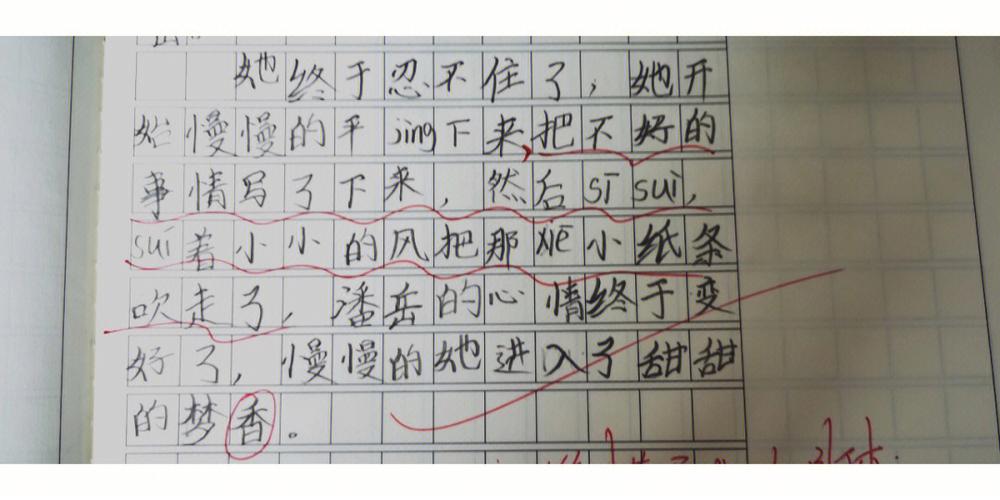 她终于忍不住了，她开
始慢慢的平jing下来，把不好的
事情写了下来，然后sī suì，
suí着小小的风把那xiē小纸条
吹走了，潘岳的心情终于变
好了，慢慢的她进入了甜甜
的梦香。